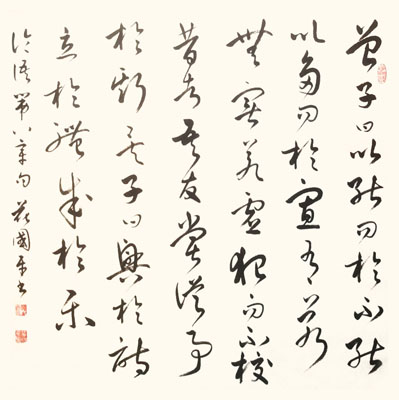 曾子曰以能問於不能
以多問於寡有若
無實若虛犯而不校
昔者吾友嘗從事
於斯矣子曰興於詩
立於禮成於樂
論語第八章句國平書